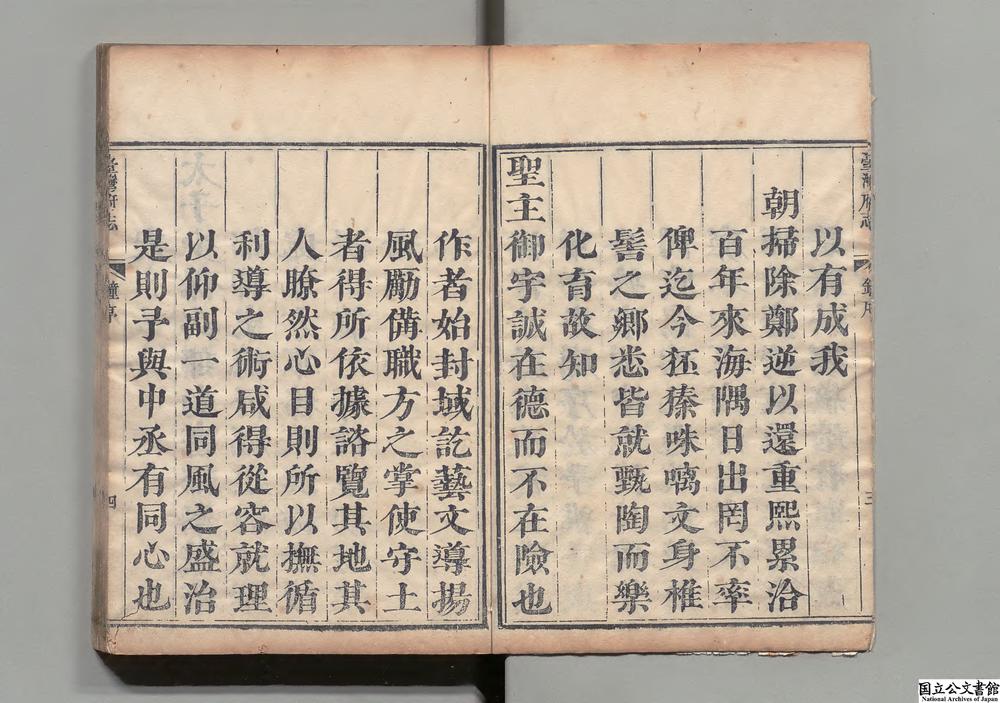 以有成我
朝掃除鄭逆以還重熙累洽
百年來海隅日出罔不率
俾迄今狉獉咮㗭文身椎
髻之鄉悉皆就甄陶而樂
化育故知
聖主御宇誠在德而不在險也
臺灣府志
鐘序
三
作者始封域訖藝文導揚
風勵備職方之掌使守土
者得所依據諮覽其地其
人瞭然心目則所以撫循
利導之術咸得從容就理
以仰副一道同風之盛治
是則予與中丞有同心也
臺灣府志
鐘序
四
国立公文書館
National Archives of Japan